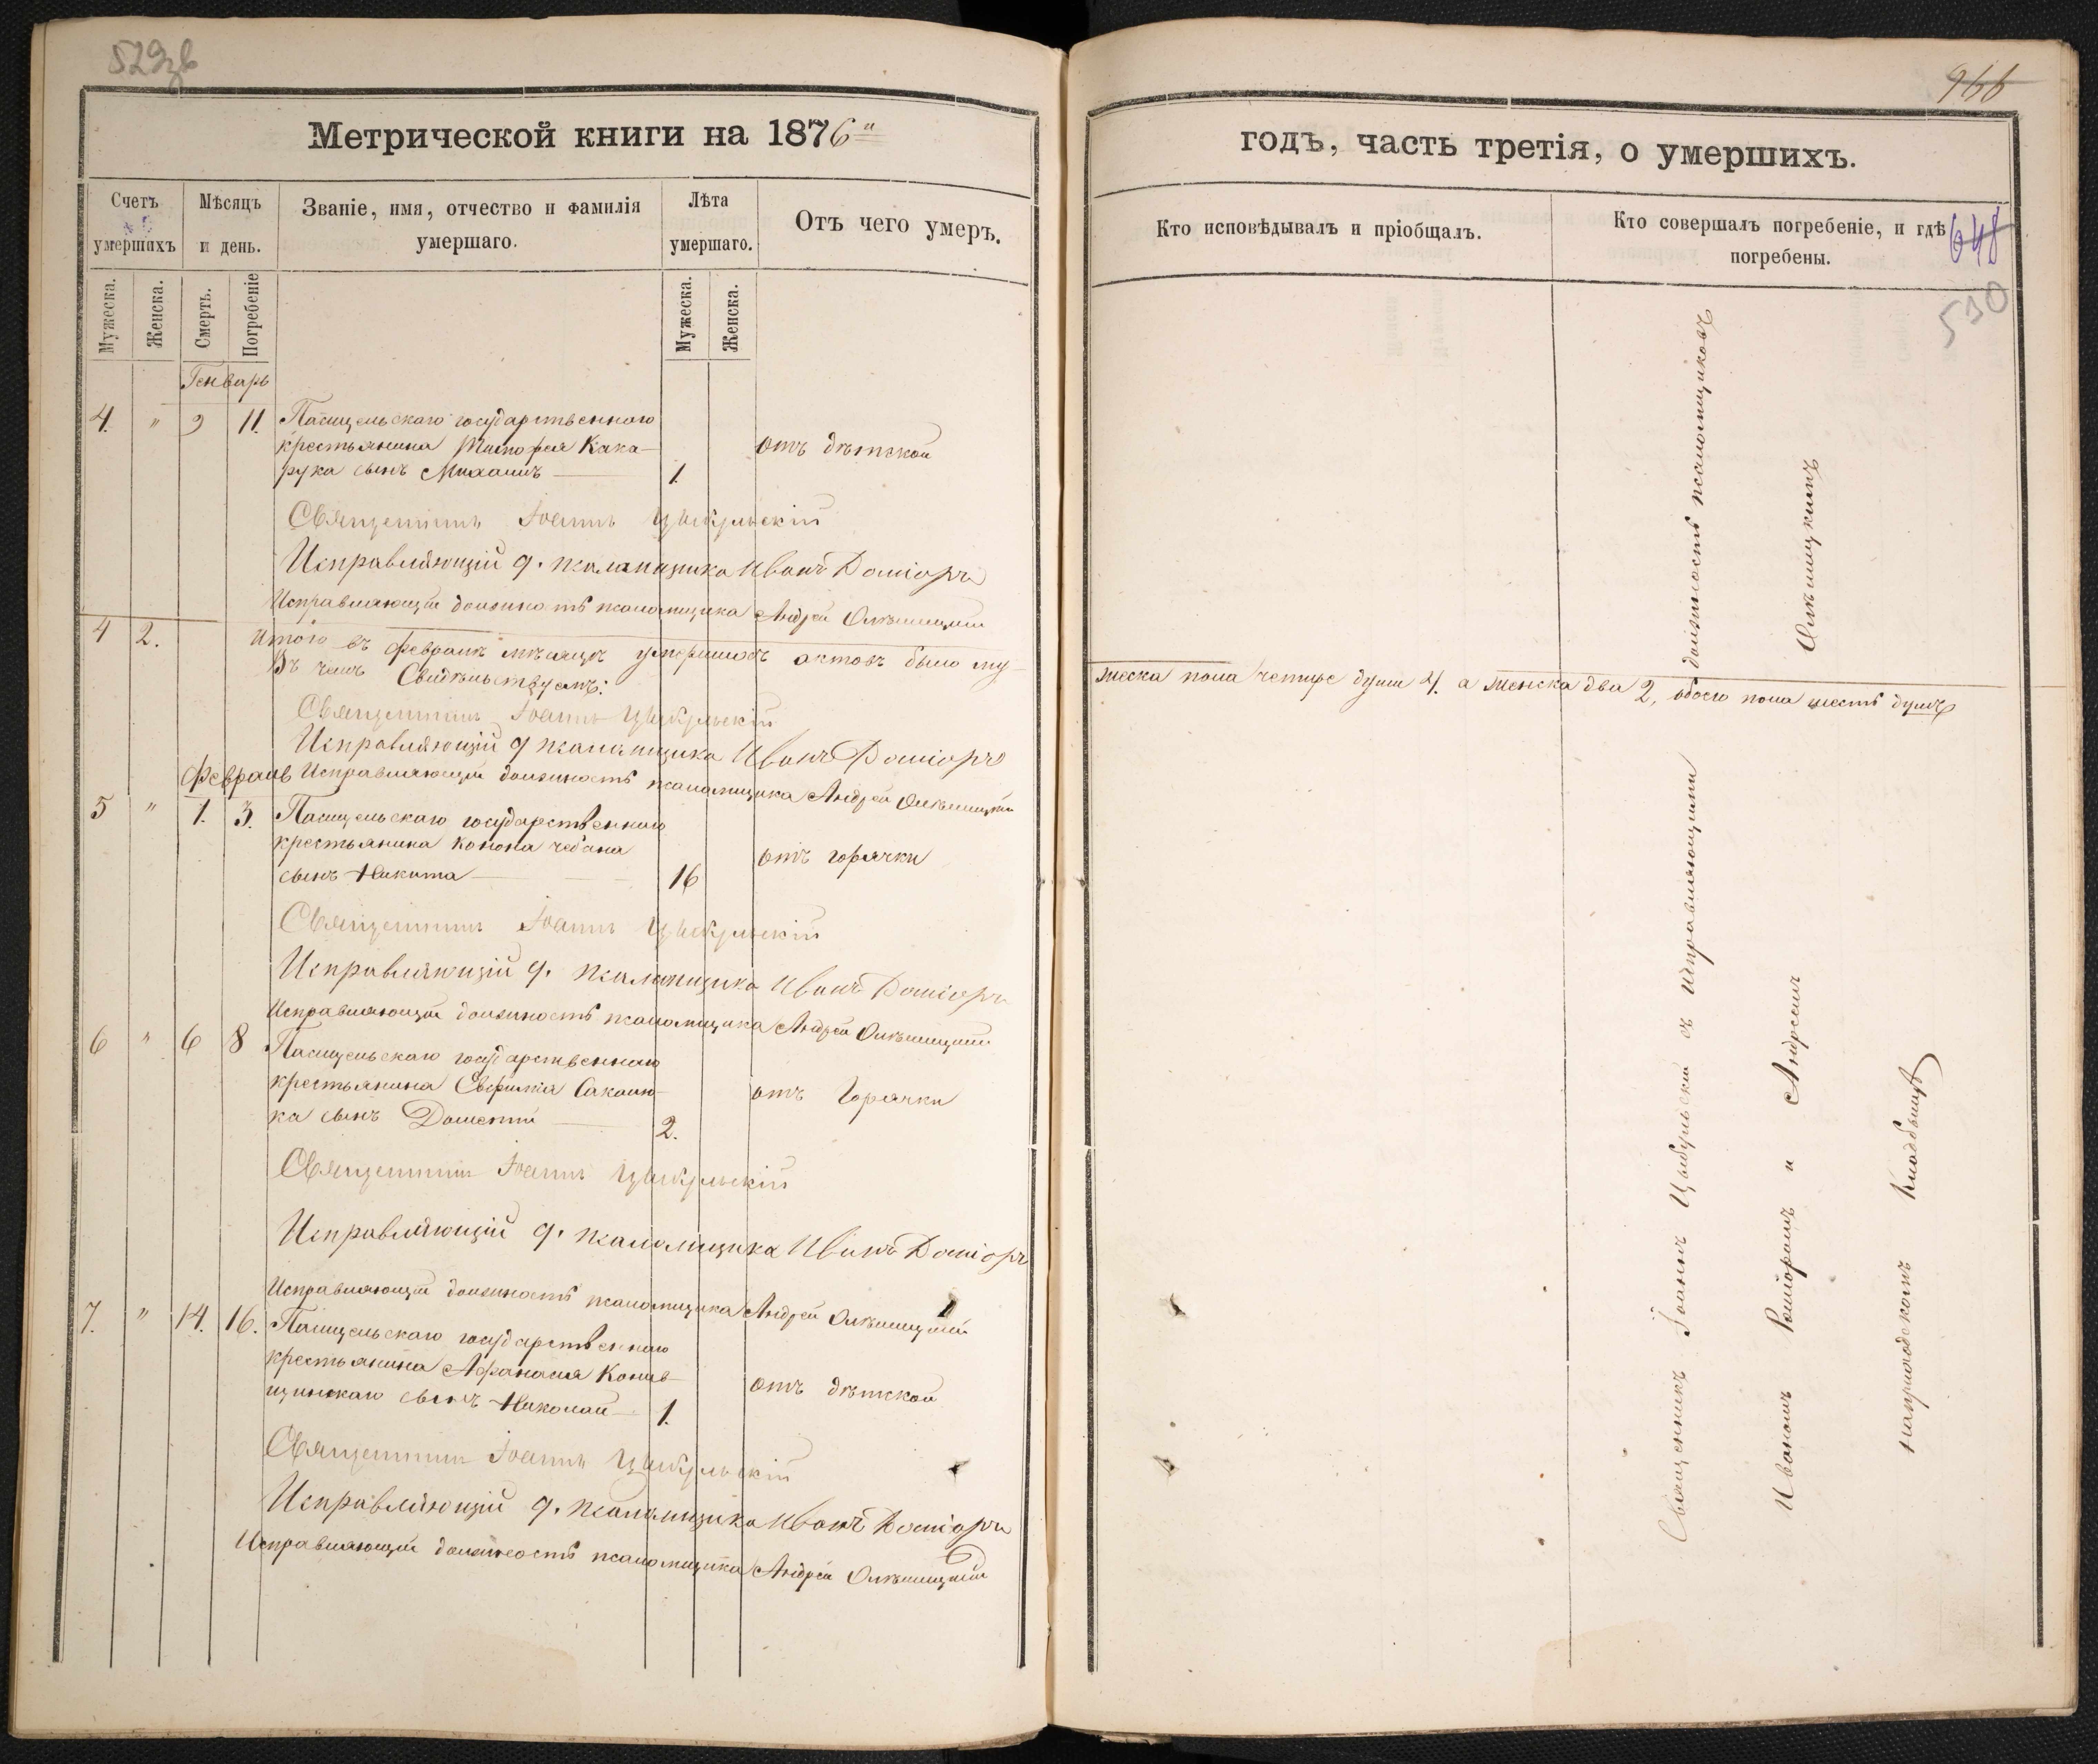 529зв
Метрической книги на 1876й
Счетъ умершихъ
Мѣсяцъ и день.
Званіе, имя, отчество и фамилія
умершаго.
Лѣта умершаго.
Отъ чего умеръ.
Мужеска.
Женска.
Смерть.
Погребеніе
Мужеска.
Женска.
Генварь
4. " 9 11. Пасицельскаго государственнаго
крестьянина Тимофея Кака-
рука сынъ Михаилъ 1. отъ дѣтской
Священникъ Іоаннъ Цыбульскій
Исправляющій д. псаломщика Иванъ Роміоръ
Исправляющій должность псаломщика Андрей
4 2. Итого въ Февралѣ мѣсяцѣ умершихъ актовъ было му-
Въ чемъ Свидѣтельствуемъ:
Священникъ Іоаннъ Цыбульскій
Исправляющій д псаломщика Иванъ Роміоръ
Февраль Исправляющій должность псаломщика Андрей
5 " 1. 3. Пасицельскаго государственнаго
крестьянина Конона Чебана
сынъ Никита 16 отъ горячки
Священникъ Іоаннъ Цыбульскій
Исправляющій д. псаломщика Иванъ Роміоръ
Исправляющій должность псаломщика Андрей
6 " 6 8 Пасицельскаго государственнаго
крестьянина Евфимія Сакалю-
ка сынъ Дометій 2. отъ Горячки
Священникъ Іоаннъ Цыбульскій
Исправляющій д. псаломщика Иванъ Роміоръ
Исправляющій должность псаломщика Андрей
7. " 14. 16. Пасицельскаго государственнаго
крестьянина Афанасія Конев-
щинскаго сынъ Николай 1. отъ дѣтской
Священникъ Іоаннъ Цыбульскій
Исправляющій д. псаломщика Иванъ Роміоръ
Исправляющій должность псаломщика Андрей
966
годъ, часть третія, о умершихъ.
Кто исповѣдывалъ и пріобщалъ.
Кто совершалъ погребеніе, и гдѣ
погребены.
648
530
жеска пола четире души 4. а женска два 2, обоего пола шесть душъ
Священникъ Іоаннъ Цыбульскій съ Исправляющими должность псаломщиковъ
Иваномъ Роміоромъ и Андреемъ
на приходскомъ кладбищѣ